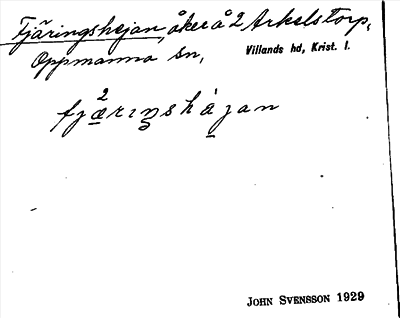 Fjäringshejan, åker å 2 Arkelstorp,
Oppmanna sn, Villands hd, Krist. l.
fjæ²rıŋshàjan
JOHN SVENSSON 1929